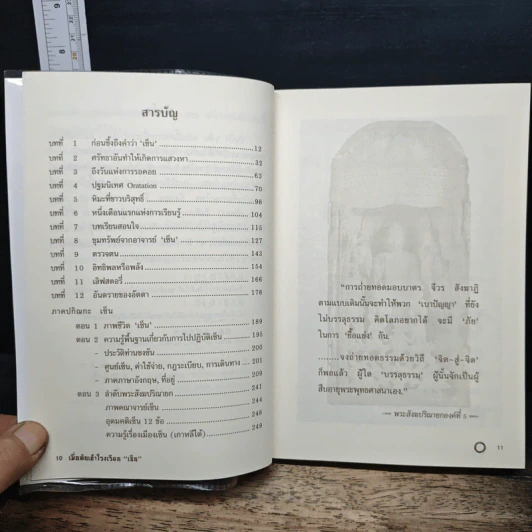 สารบัญ
บทที่ 1 ก่อนขึ้งถึงคำว่า 'เซ็น' 12
บทที่ 2 ศรัทธาอันทำให้เกิดการแสวงหา 32
บทที่ 3 ถึงวันแห่งการรอคอย 63
บทที่ 4 ปฐมนิเทศ Oratation 70
บทที่ 5 หิมะที่ขาวบริสุทธิ์ 98
บทที่ 6 หนึ่งเดือนแรกแห่งการเรียนรู้ 104
บทที่ 7 บทเรียนสอนใจ 115
บทที่ 8 ขุมทรัพย์จากอาจารย์ 'เซ็น' 127
บทที่ 9 ตรวจตน 143
บทที่ 10 อิทธิพลหรือพลัง 154
บทที่ 11 เลิฟสตอรี่ 166
บทที่ 12 อันตรายของอัตตา 178
ภาคปกิณกะ เซ็น
ตอน 1 ภาพชีวิต 'เซ็น' 189
ตอน 2 ความรู้พื้นฐานเกี่ยวกับการไปปฏิบัติเซ็น 195
- ประวัติท่านซงซัน 200
- ศูนย์เซ็น, ค่าใช้จ่าย, กฎระเบียบ, การเดินทาง 201
- ภาคภาษาอังกฤษ, ที่อยู่ 209
ตอน 3 ลำดับพระสังฆปริณายก 241
ภาพคณาจารย์เซ็น 244
อุดมคติเซ็น 12 ข้อ 247
ความรู้เรื่องเมืองเซ็น (เกาหลีใต้) 249
10 เมื่อฉันเข้าโรงเรียน "เซ็น"
"การถ่ายทอดมอบบาตร จีวร สังฆาฏิ
ตามแบบเดิมนั้นจะทำให้พวก 'เบาปัญญา' ที่ยัง
ไม่บรรลุธรรม คิดโลภอยากได้ จะมี 'ภัย'
ในการ 'ยื้อแย่ง' กัน.
........จงถ่ายทอดธรรมด้วยวิถี 'จิต-สู่-จิต'
ก็พอแล้ว ผู้ใด 'บรรลุธรรม' ผู้นั้นจักเป็นผู้
สืบอายุพระพุทธศาสนาเอง."
— พระสังฆปริณายกองค์ที่ 5 —
11